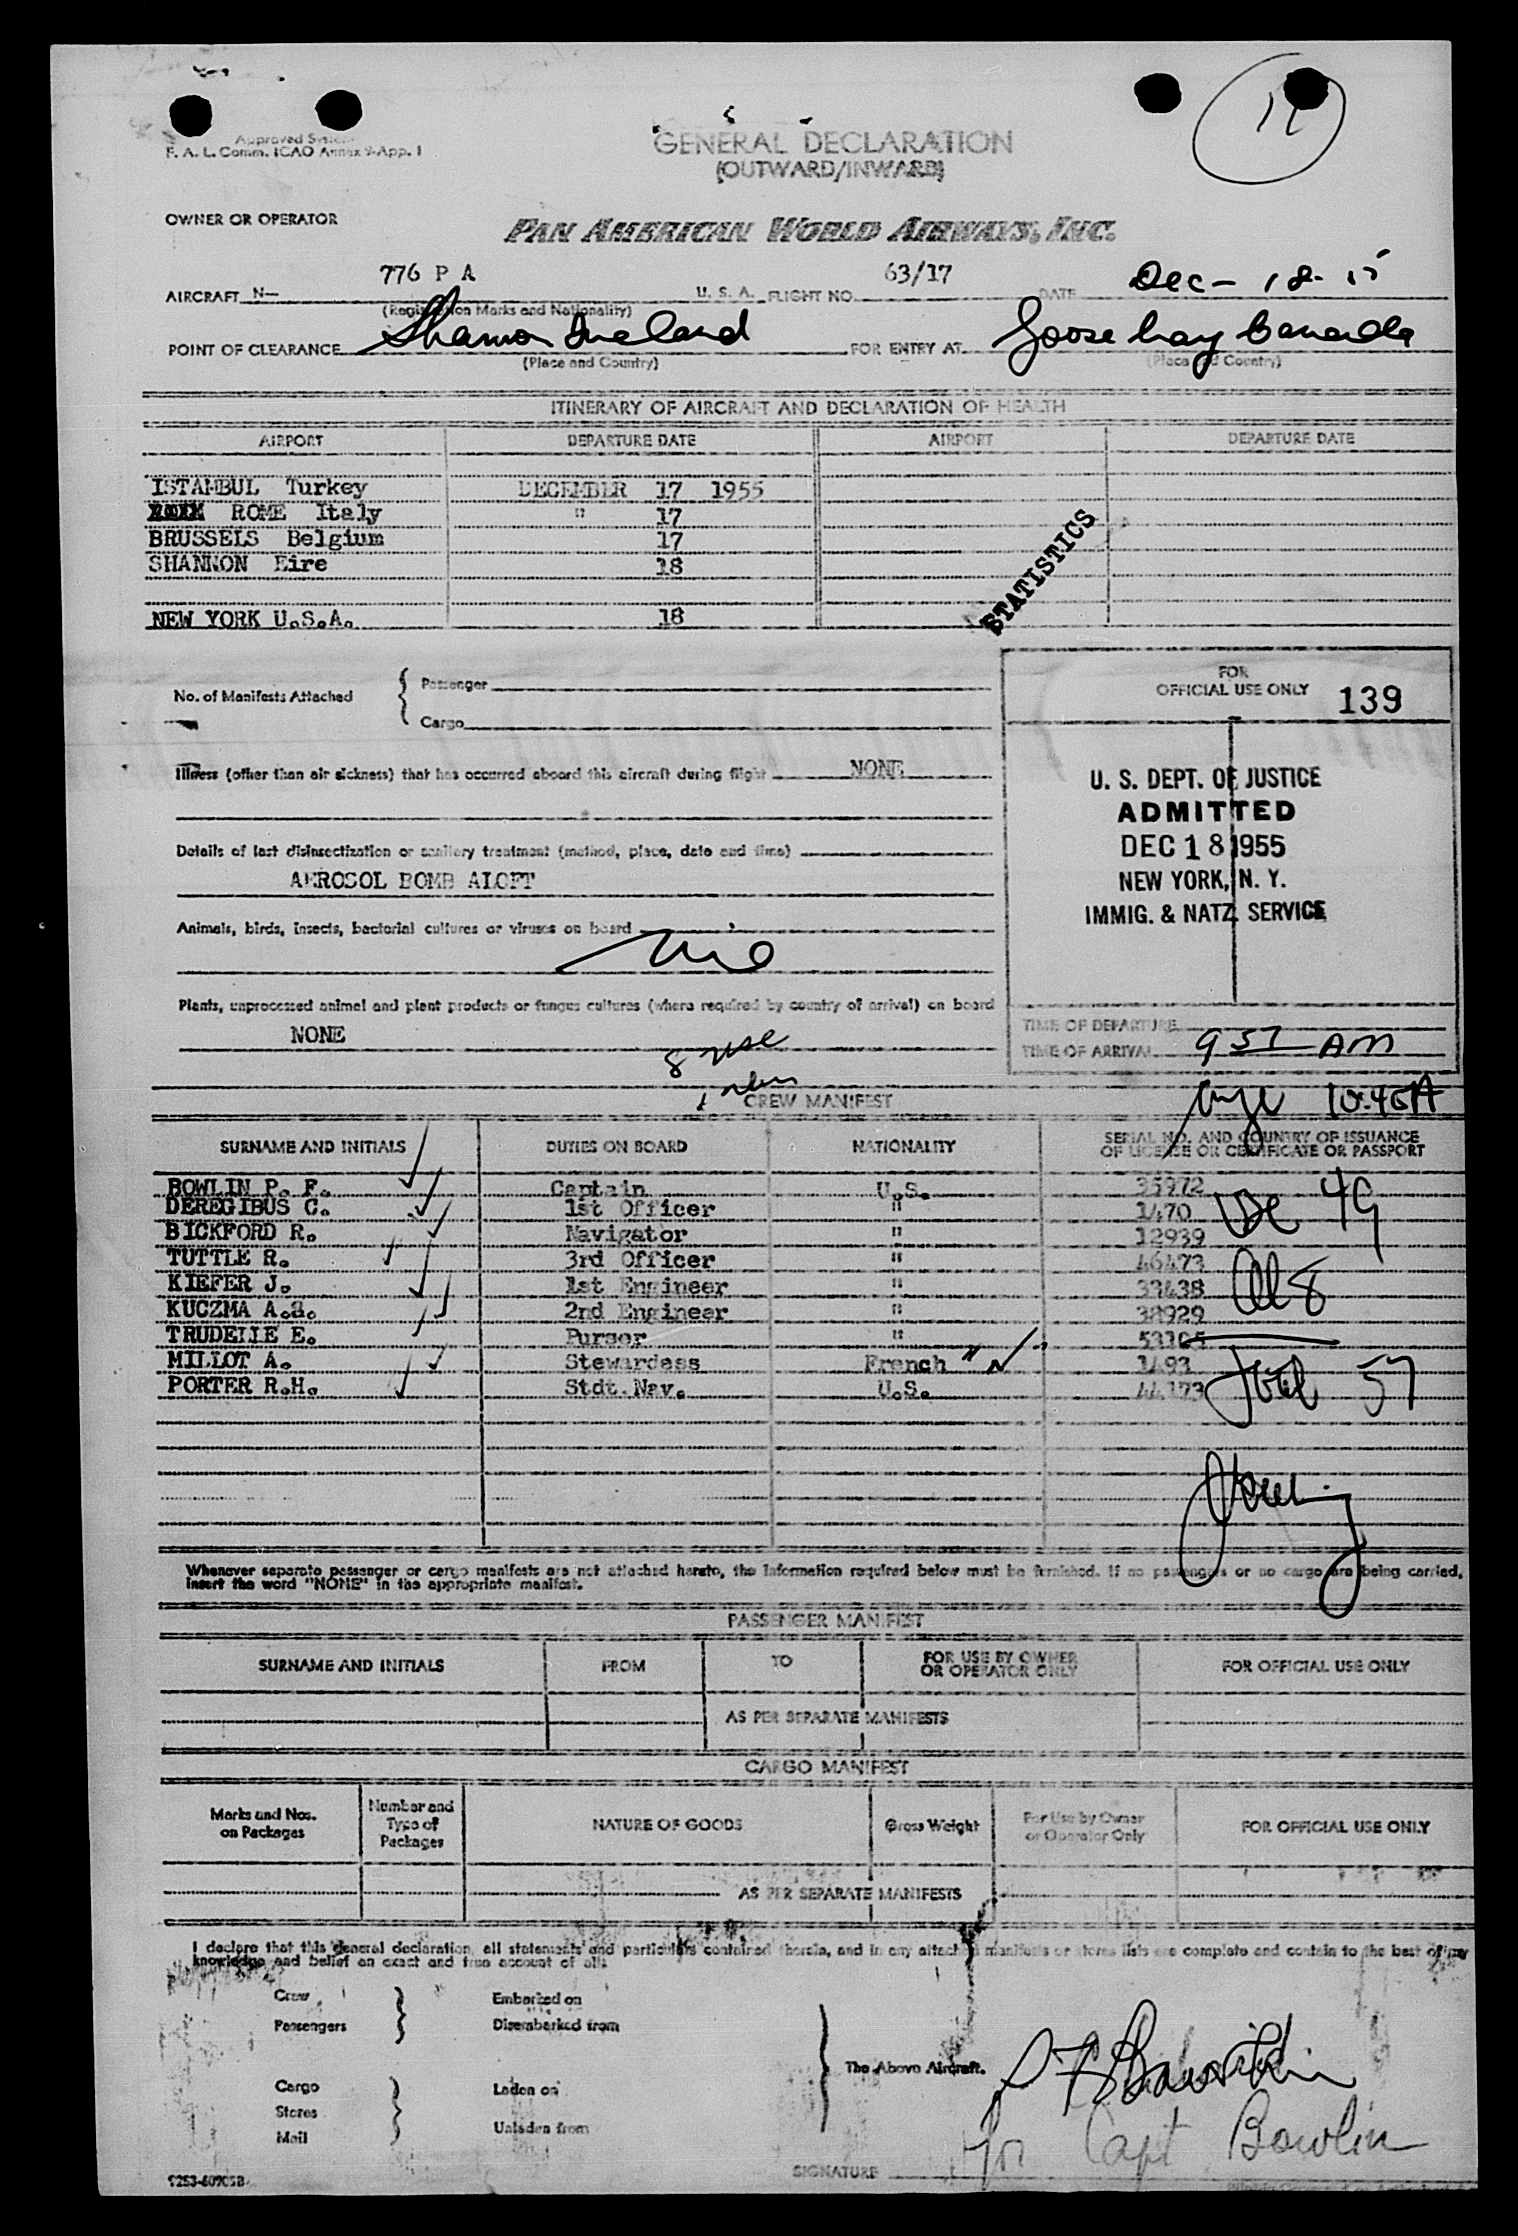 Approved System
F. A. L. Comm. ICAO Annex 9-App. 1
GENERAL DECLARATION
(OUTWARD/INWARD)
OWNER OR OPERATOR
PAN AMERICAN WORLD AIRWAYS, INC.
AIRCRAFT N— 776 P A U. S. A. FLIGHT NO. 63/17 DATE Dec - 18 - 55
(Registration Marks and Nationality)
POINT OF CLEARANCE Shannon Ireland FOR ENTRY AT Goose bay Canada
(Place and Country) (Place and Country)
ITINERARY OF AIRCRAFT AND DECLARATION OF HEALTH
AIRPORT DEPARTURE DATE AIRPORT DEPARTURE DATE
ISTAMBUL Turkey DECEMBER 17 1955
ROME Italy " 17
BRUSSELS Belgium 17
SHANNON Eire 18
NEW YORK U.S.A. 18
STATISTICS
No. of Manifests Attached { Passenger
Cargo
FOR
OFFICIAL USE ONLY 139
Illness (other than air sickness) that has occurred aboard this aircraft during flight NONE
U. S. DEPT. OF JUSTICE
ADMITTED
DEC 18 1955
NEW YORK, N. Y.
IMMIG. & NATZ. SERVICE
Details of last disinsectization or sanitary treatment (method, place, date and time)
AEROSOL BOMB ALOFT
Animals, birds, insects, bacterial cultures or viruses on board
Plants, unprocessed animal and plant products or fungus cultures (where required by country of arrival) on board
NONE
TIME OF DEPARTURE
TIME OF ARRIVAL 9 57 AM
8 use
10.45A
CREW MANIFEST
SURNAME AND INITIALS DUTIES ON BOARD NATIONALITY SERIAL NO. AND COUNTRY OF ISSUANCE
OF LICENSE OR CERTIFICATE OR PASSPORT
BOWLIN P. F. Captain U.S. 35972
DEREGIBUS C. 1st Officer " 1470
BICKFORD R. Navigator " 12939
TUTTLE R. 3rd Officer " 46473
KIEFER J. 1st Engineer " 33438
KUCZMA A.S. 2nd Engineer " 38929
TRUDELLE E. Purser " 53105
MILLOT A. Stewardess French 1493
PORTER R.H. Stdt. Nav. U.S. 44173
USC 49
Al 8
Total 57
Whenever separate passenger or cargo manifests are not attached hereto, the information required below must be furnished. If no passengers or no cargo are being carried,
insert the word "NONE" in the appropriate manifest.
PASSENGER MANIFEST
SURNAME AND INITIALS FROM TO FOR USE BY OWNER
OR OPERATOR ONLY FOR OFFICIAL USE ONLY
AS PER SEPARATE MANIFESTS
CARGO MANIFEST
Marks and Nos.
on Packages Number and
Type of
Packages NATURE OF GOODS Gross Weight For Use by Owner
or Operator Only FOR OFFICIAL USE ONLY
AS PER SEPARATE MANIFESTS
I declare that this general declaration, all statements and particulars contained therein, and in any attached manifests or stores lists are complete and contain to the best of my
knowledge and belief an exact and true account of all:
Crew
Passengers } Embarked on
Disembarked from
Cargo
Stores
Mail } Laden on
Unladen from
The Above Aircraft.
P F Bowlin
for Capt Bowlin
SIGNATURE